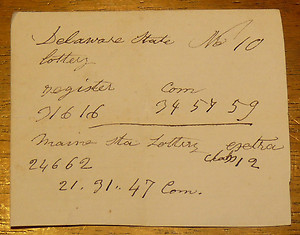 Delaware State No 10
lottery
register Com
31616 34 57 59
Maine Sta Lottery extra
24662 Class 12
21.31..47 Com.